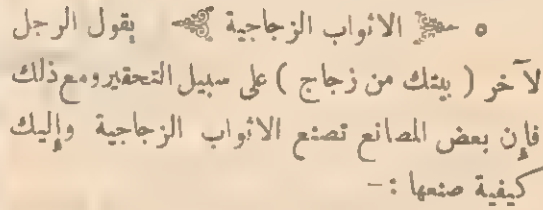 ٥ الاثواب الزجاجية يقول الرجل
لآخر ( بيتك من زجاج ) على سبيل التحقير ومع ذلك
فإن بعض المصانع تصنع الاثواب الزجاجية وإليك
كيفية صنعها :-